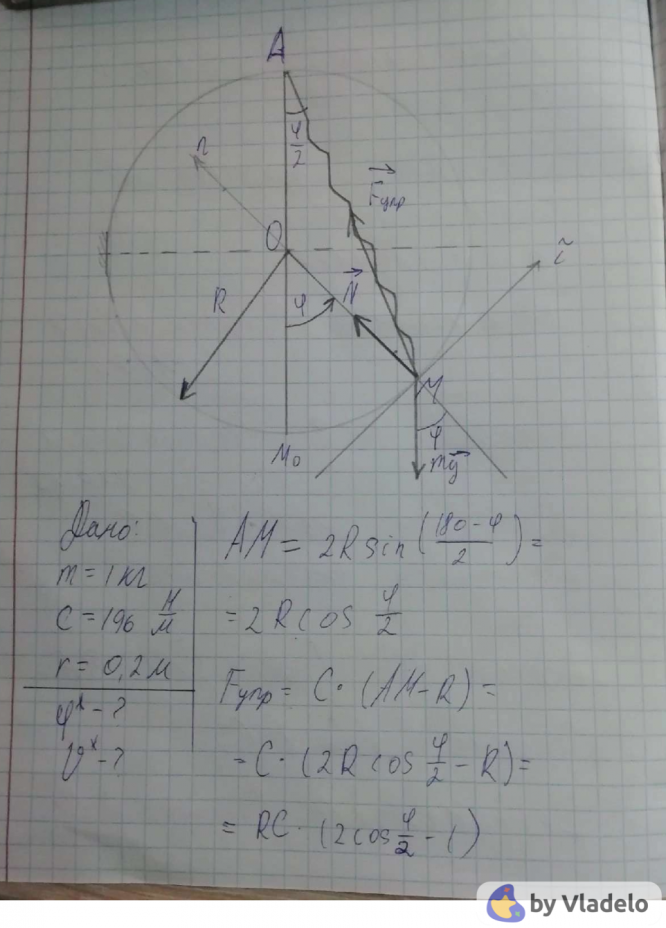 A
φ/2
n
F⃗упр
O
τ
R
φ
N⃗
M
φ
M₀
mg⃗
Дано:
m = 1 кг
C = 196 Н/м
r = 0,2 м
φˣ - ?
𝒱ˣ - ?
AM = 2R sin ((180 - φ)/2) =
= 2R cos φ/2
Fупр = C · (AM - R) =
= C · (2R cos φ/2 - R) =
= RC · (2cos φ/2 - 1)
by Vladelo